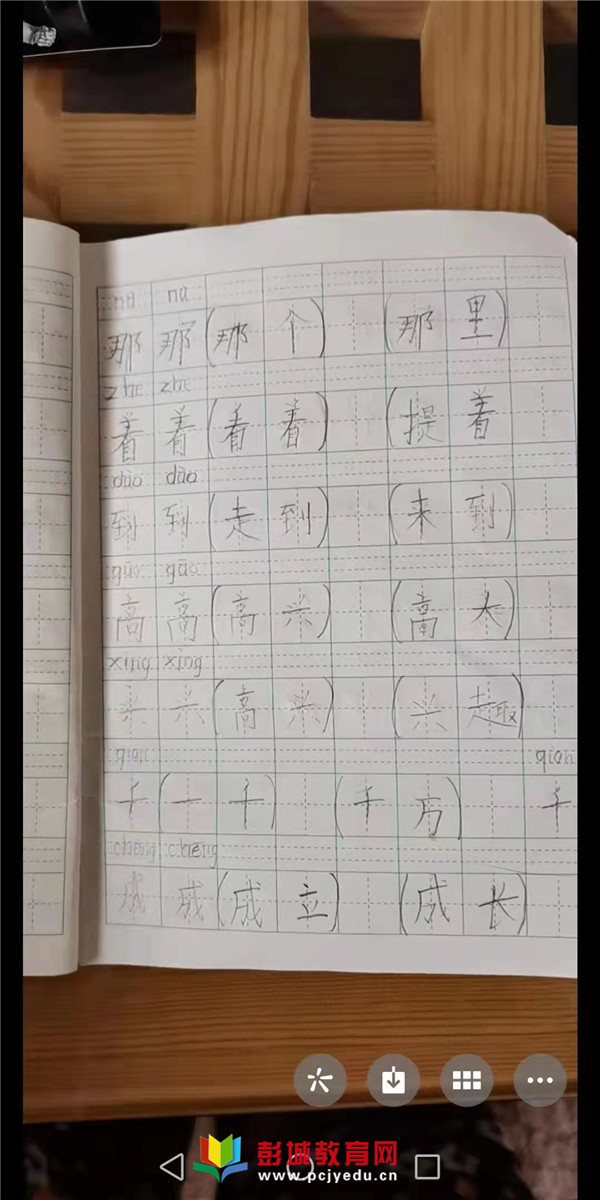 nà nà
那 那 (那 个) (那 里)
zhe zhe
着 着 (看 着) (提 着)
dào dào
到 到 (走 到) (来 到)
gāo gāo
高 高 (高 兴) (高 大)
xìng xìng
兴 兴 (高 兴) (兴 趣)
qiān qiān
千 (一 千) (千 万) 千
chéng chéng
成 成 (成 立) (成 长)
彭城教育网
www.pcjyedu.cn